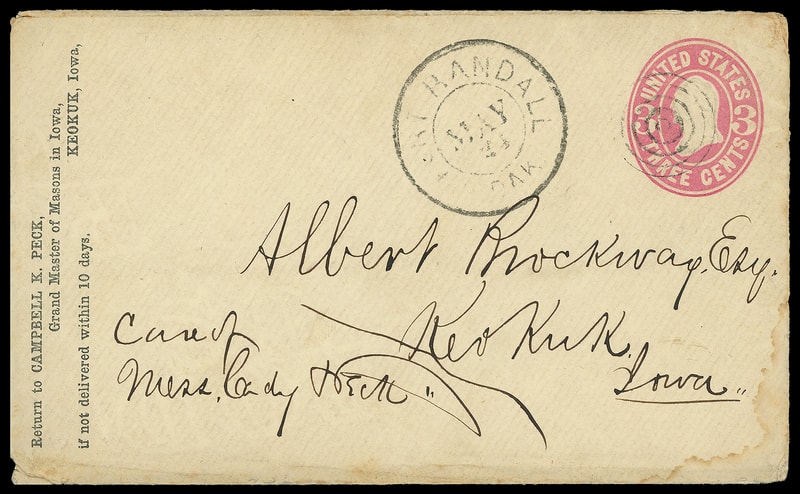 Return to CAMPBELL K. PECK,
Grand Master of Masons in Iowa,
KEOKUK, Iowa,
if not delivered within 10 days.
FORT RANDALL
MAY
DAK
UNITED STATES
3 3
THREE CENTS
Albert Brockway, Esq.
Keokuk.
Iowa"
Care of
Mess. Cady & Peck"